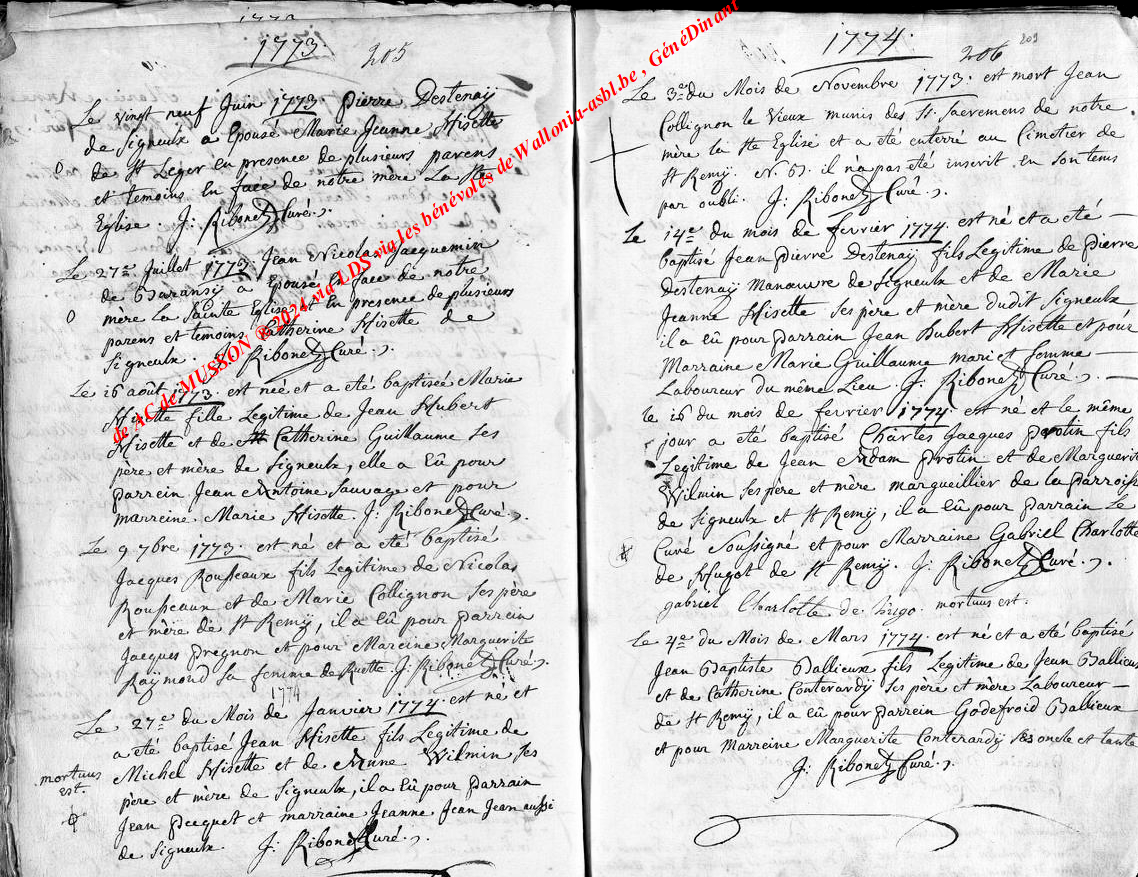 1773
205
Le vingt neuf Juin 1773 pierre Destenay
de Signeulx a Epousé Marie Jeanne Hisette
de St Leger en presence de plusieurs parens
et temoins En face de notre mère La Ste
Eglise J: Ribonet Curé.
Le 27e Juillet 1773 Jean Nicolas Jacquemin
de Baransy a Epousé En face de notre
mère la Sainte Eglise et En presence de plusieurs
parens et temoins Catherine Hisette de
Signeulx. J: Ribonet Curé.
Le 16 août 1773 est née et a eté baptisée Marie
Hisette fille Legitime de Jean Hubert
Hisette et de Catherine Guillaume Ses
père et mère de Signeulx, elle a Eû pour
parrein Jean Antoine Sauvage et pour
marreine Marie Hisette. J: Ribonet Curé.
Le 9 7bre 1773. est né et a eté baptisé
Jacques Rousseaux fils Legitime de Nicolas
Rousseaux et de Marie Collignon Ses père
et mère de St Remÿ, il a Eû pour parrein
Jacques pregnon et pour Marreine Marguerite
Raÿmond Sa femme de Ruette J: Ribonet Curé.
1774
Le 27e du Mois de Janvier 1774. est né et
a eté baptisé Jean Hisette fils Legitime de
Michel Hisette et de Anne Wilmin Ses
mortuus
est.
père et mère de Signeulx, il a Eû pour parrain
Jean pecquet et marraine Jeanne Jean Jean aussi
de Signeulx. J: Ribonet Curé.
1774
206
209
Le 3e du Mois de Novembre 1773. est mort Jean
Collignon le Vieux munis des St. Sacremens de notre
mère la Ste Eglise et a eté enterré au Cimetier de
St Remÿ. il n'a pas eté inscrit en Son tems
par oubli. J: Ribonet Curé.
Le 14e du mois de fevrier 1774. est né et a eté
baptisé Jean pierre Destenay fils Legitime de pierre
Destenay Manœuvre de Signeulx et de Marie
Jeanne Hisette Ses père et mère dudit Signeulx
il a Eû pour parrain Jean Hubert Hisette et pour
Marraine Marie Guillaume mari et femme
Laboureur du même Lieu. J: Ribonet Curé.
le 16 du mois de fevrier 1774. est né et le même
jour a eté baptisé Charles Jacques protin fils
Legitime de Jean Adam protin et de Marguerite
Wilmin Ses père et mère margueillier de la parroisse
de Signeulx et St Remÿ, il a Eû pour parrain Le
Curé Soussigné et pour Marraine Gabriel Charlotte
de Hugot de St Remÿ. J: Ribonet Curé.
gabriel Charlotte de hugo. mortuus est.
Le 4e du Mois de Mars 1774. est né et a eté baptisé
Jean Baptiste Ballieux fils Legitime de Jean Ballieux
et de Catherine Conterardÿ Ses père et mère Laboureur
de St Remÿ, il a Eû pour parrein Godefroid Ballieux
et pour Marreine Marguerite Conterardÿ Ses oncle et tante
J: Ribonet Curé.
de AC de MUSSON ® 2024 via LDS via les bénévoles de Wallonia-asbl.be , GénéDinant